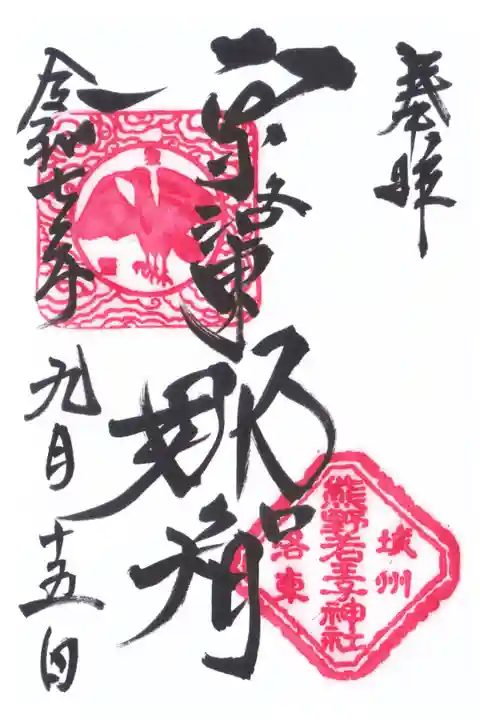 奉拝
京洛東
那智
令和七年
九月
十五日
城州
熊野若王子神社
洛東